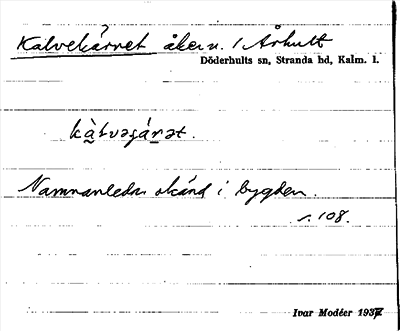 Kalvekärret åkern. i Århult
Döderhults sn, Stranda hd, Kalm. l.
Namnanledn okänd i bygden.
s. 108.
Ivar Modéer 1937